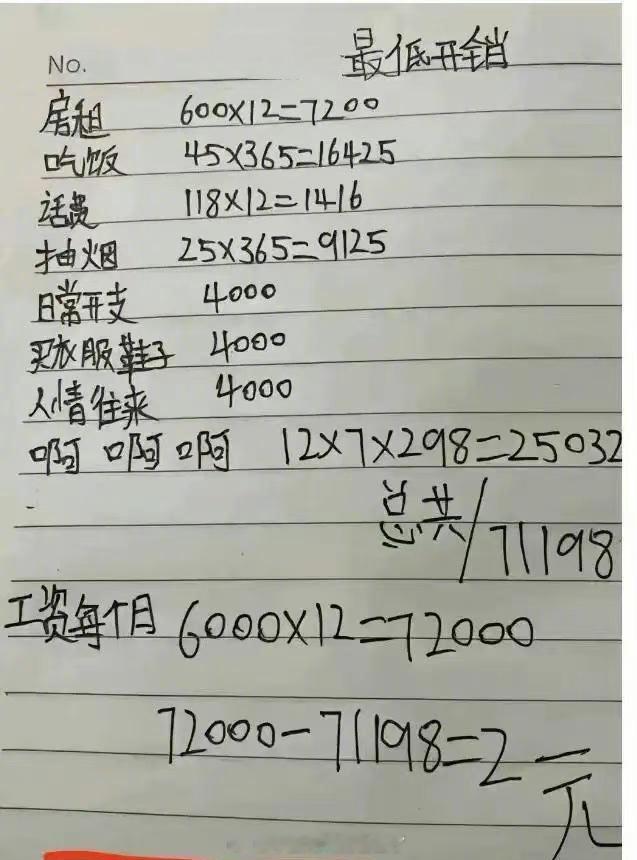 No.
最低开销
房租 600×12=7200
吃饭 45×365=16425
话费 118×12=1416
抽烟 25×365=9125
日常开支 4000
买衣服鞋子 4000
人情往来 4000
啊 啊 啊 12×7×298=25032
总共/71198
工资每个月 6000×12=72000
72000-71198=2元